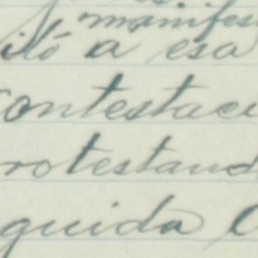 manifes
itó á esa
ontestaci
rotestand
guida